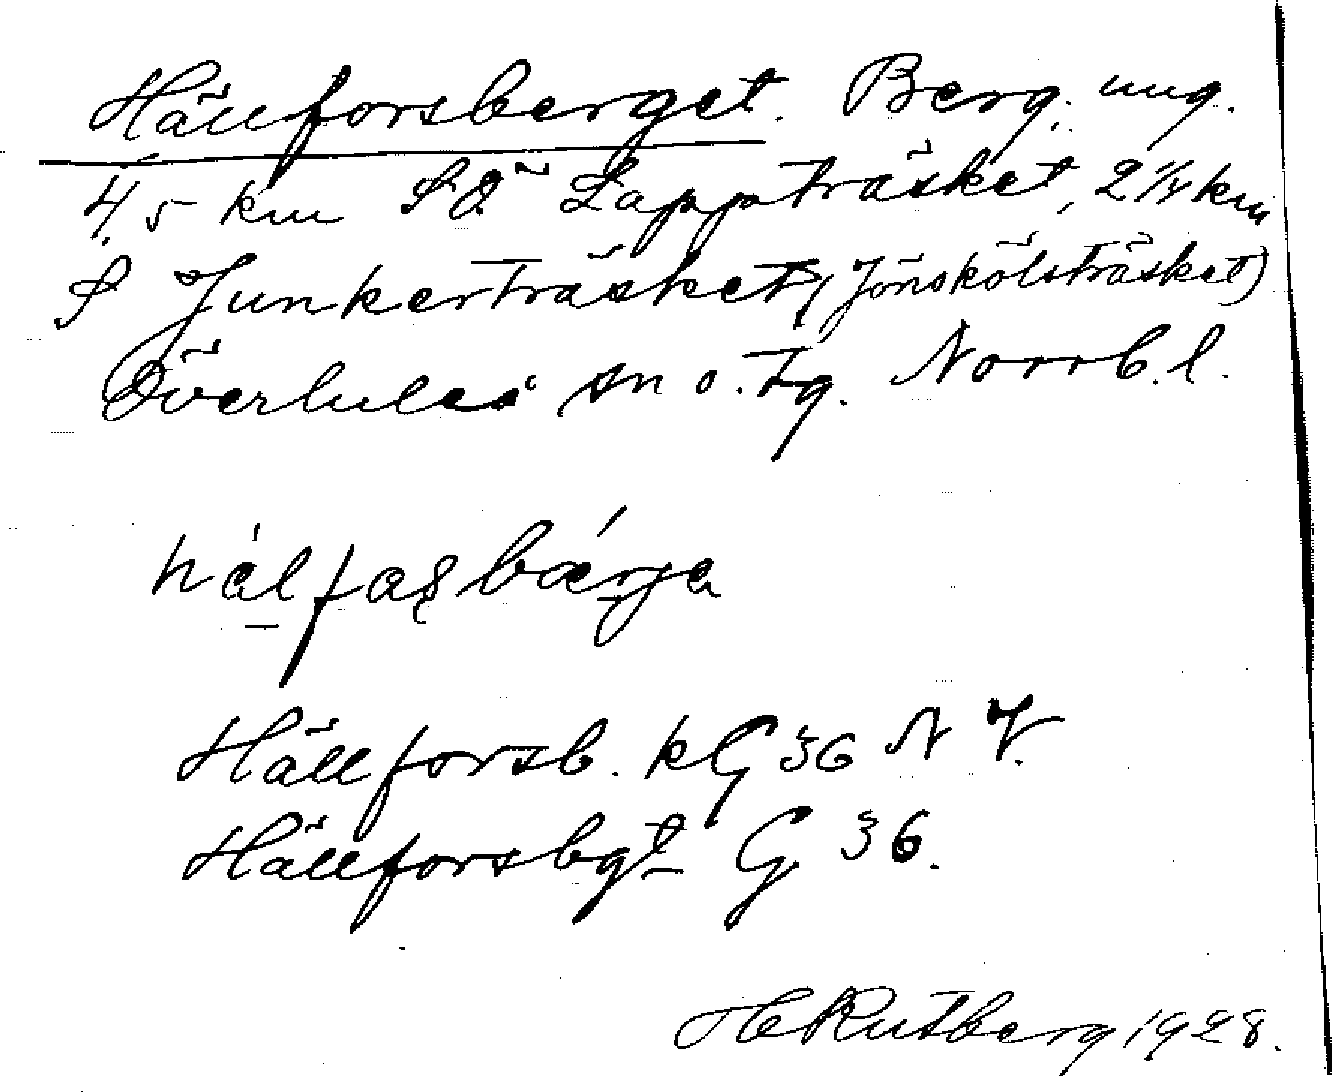 Hällforsberget. Berg, ung.
4,5 km SÖ Lappträsket, 2 1/2 km
S Junkerträsket, (Jönskölsträsket)
Överluleå sn o. tg. Norrb. l.
hèlfasbærja
Hällforsb. kG 36 N V.
Hällforsbgt G 36.
H Rutberg 1928.